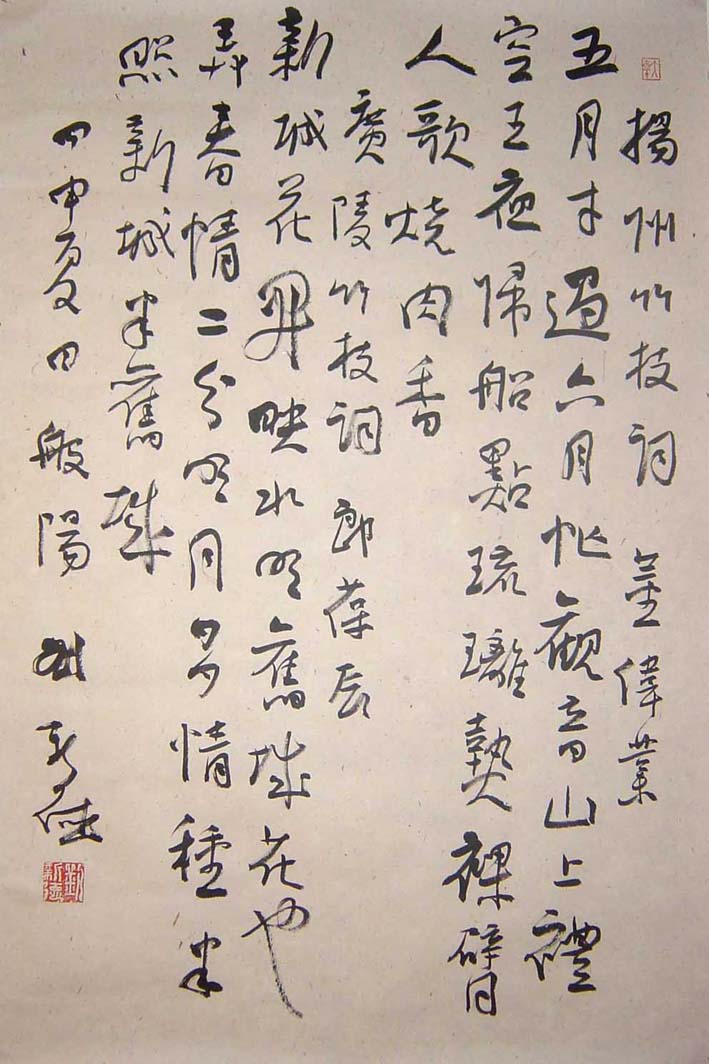 揚州竹枝詞 董偉業
五月才過六月忙觀音山上禮
空王夜歸船點琉璃爇裸臂
人歌燒肉香
廣陵竹枝詞 郎葆辰
新城花開映水明舊城花也
弄春情二分明月多情種半
照新城半舊城
甲申夏日 般陽 刘新德